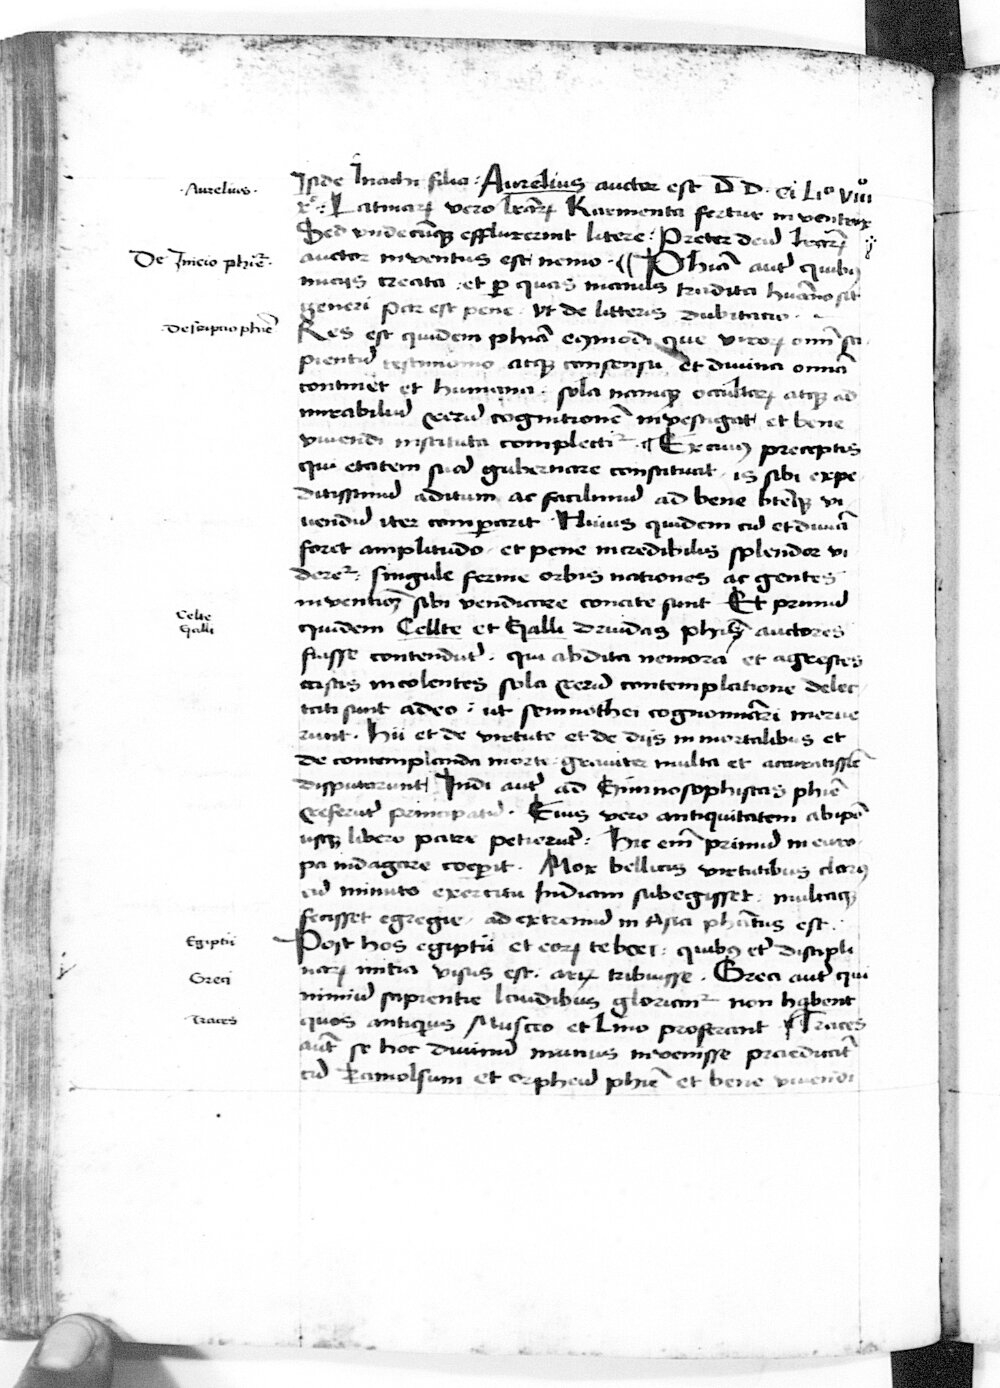 ·Aurelius·
Iside Inachi filia: Aurelius auctor est D D· ei Li° viiii
x°: Latinaꝝ vero lr̃aꝝ Karmenta fertur inventrix
Sed vndecũqꝫ effluxerint litere: Preter deũ lr̃aꝝ
De Inicio phiẽ·
auctor inventus est nemo· Phiã aut̃ quibꝰ
iniciis creata: et ꝑ quas manus tradita huãno sit
generi par est pene· vt de litteris dubitacio·
Descriptio phiẽ
Res est quidem phiã eiꝰmodi que viroꝝ om̃i sa
pientiũ testimonio atqꝫ consensu et divina omĩa
continet et humana: sola namqꝫ occultaꝝ atqꝫ ad
mirabiliũ rerũ cognitionẽ investigat et bene
vivendi instituta complectit᷑· Ex cuiꝰ preceptis
qui etatem suã gubernare constituat· is sibi expe
ditissimũ aditum ac facilimũ ad bene bteqꝫ vi
uendũ iter comparit· Huius quidem cũ et divinã
foret amplitudo· et pene incredibilis splendor vi
deret᷑: singule ferme orbis nationes ac gentes
inventioẽ sibi vendicare concite sunt Et primũ
Celte
Galli
quidem Cellte et Galli druidas phiẽ auctores
fuisse contendut̃· qui abdita nemora et agrestes
casus incolentes sola rerũ contemplatione delec
tati sunt adeo: ut semnothei cognominari merue
runt· Hii et de virtute et de diis inmortalibus et
de contemplanda morte graviter multa et accuratissiẽ
disputarunt Indi aut̃ ad Gimnosophistas phiẽ
referut̃ principatũ· Eius vero antiquitatem ab ipẽ
usqꝫ libero patre petierut̃: Hic em̃ primũ in euro
pa indagare coeperit· Mox bellicis virtutibus clarꝰ
cũ minuto exercitu Indiam subegisset: multaqꝫ
fecisset egregie· ad extremũ in Asia phatus est·
Egiptii
Post hos egiptii et eoꝝ te beet: quibꝰ et discipli
Greci
naꝝ initia visus est· aeri tribuisse· Greci aut̃ qui
nimiũ sapientie laudibus gloriant᷑ non habent
Traces
quos antiquis Museo et Lino proferant Traces
aut̃ se hoc divinũ munus invenisse praedicat̃
cũ Zamolsum et orpheũ phiẽ et bene vivendi